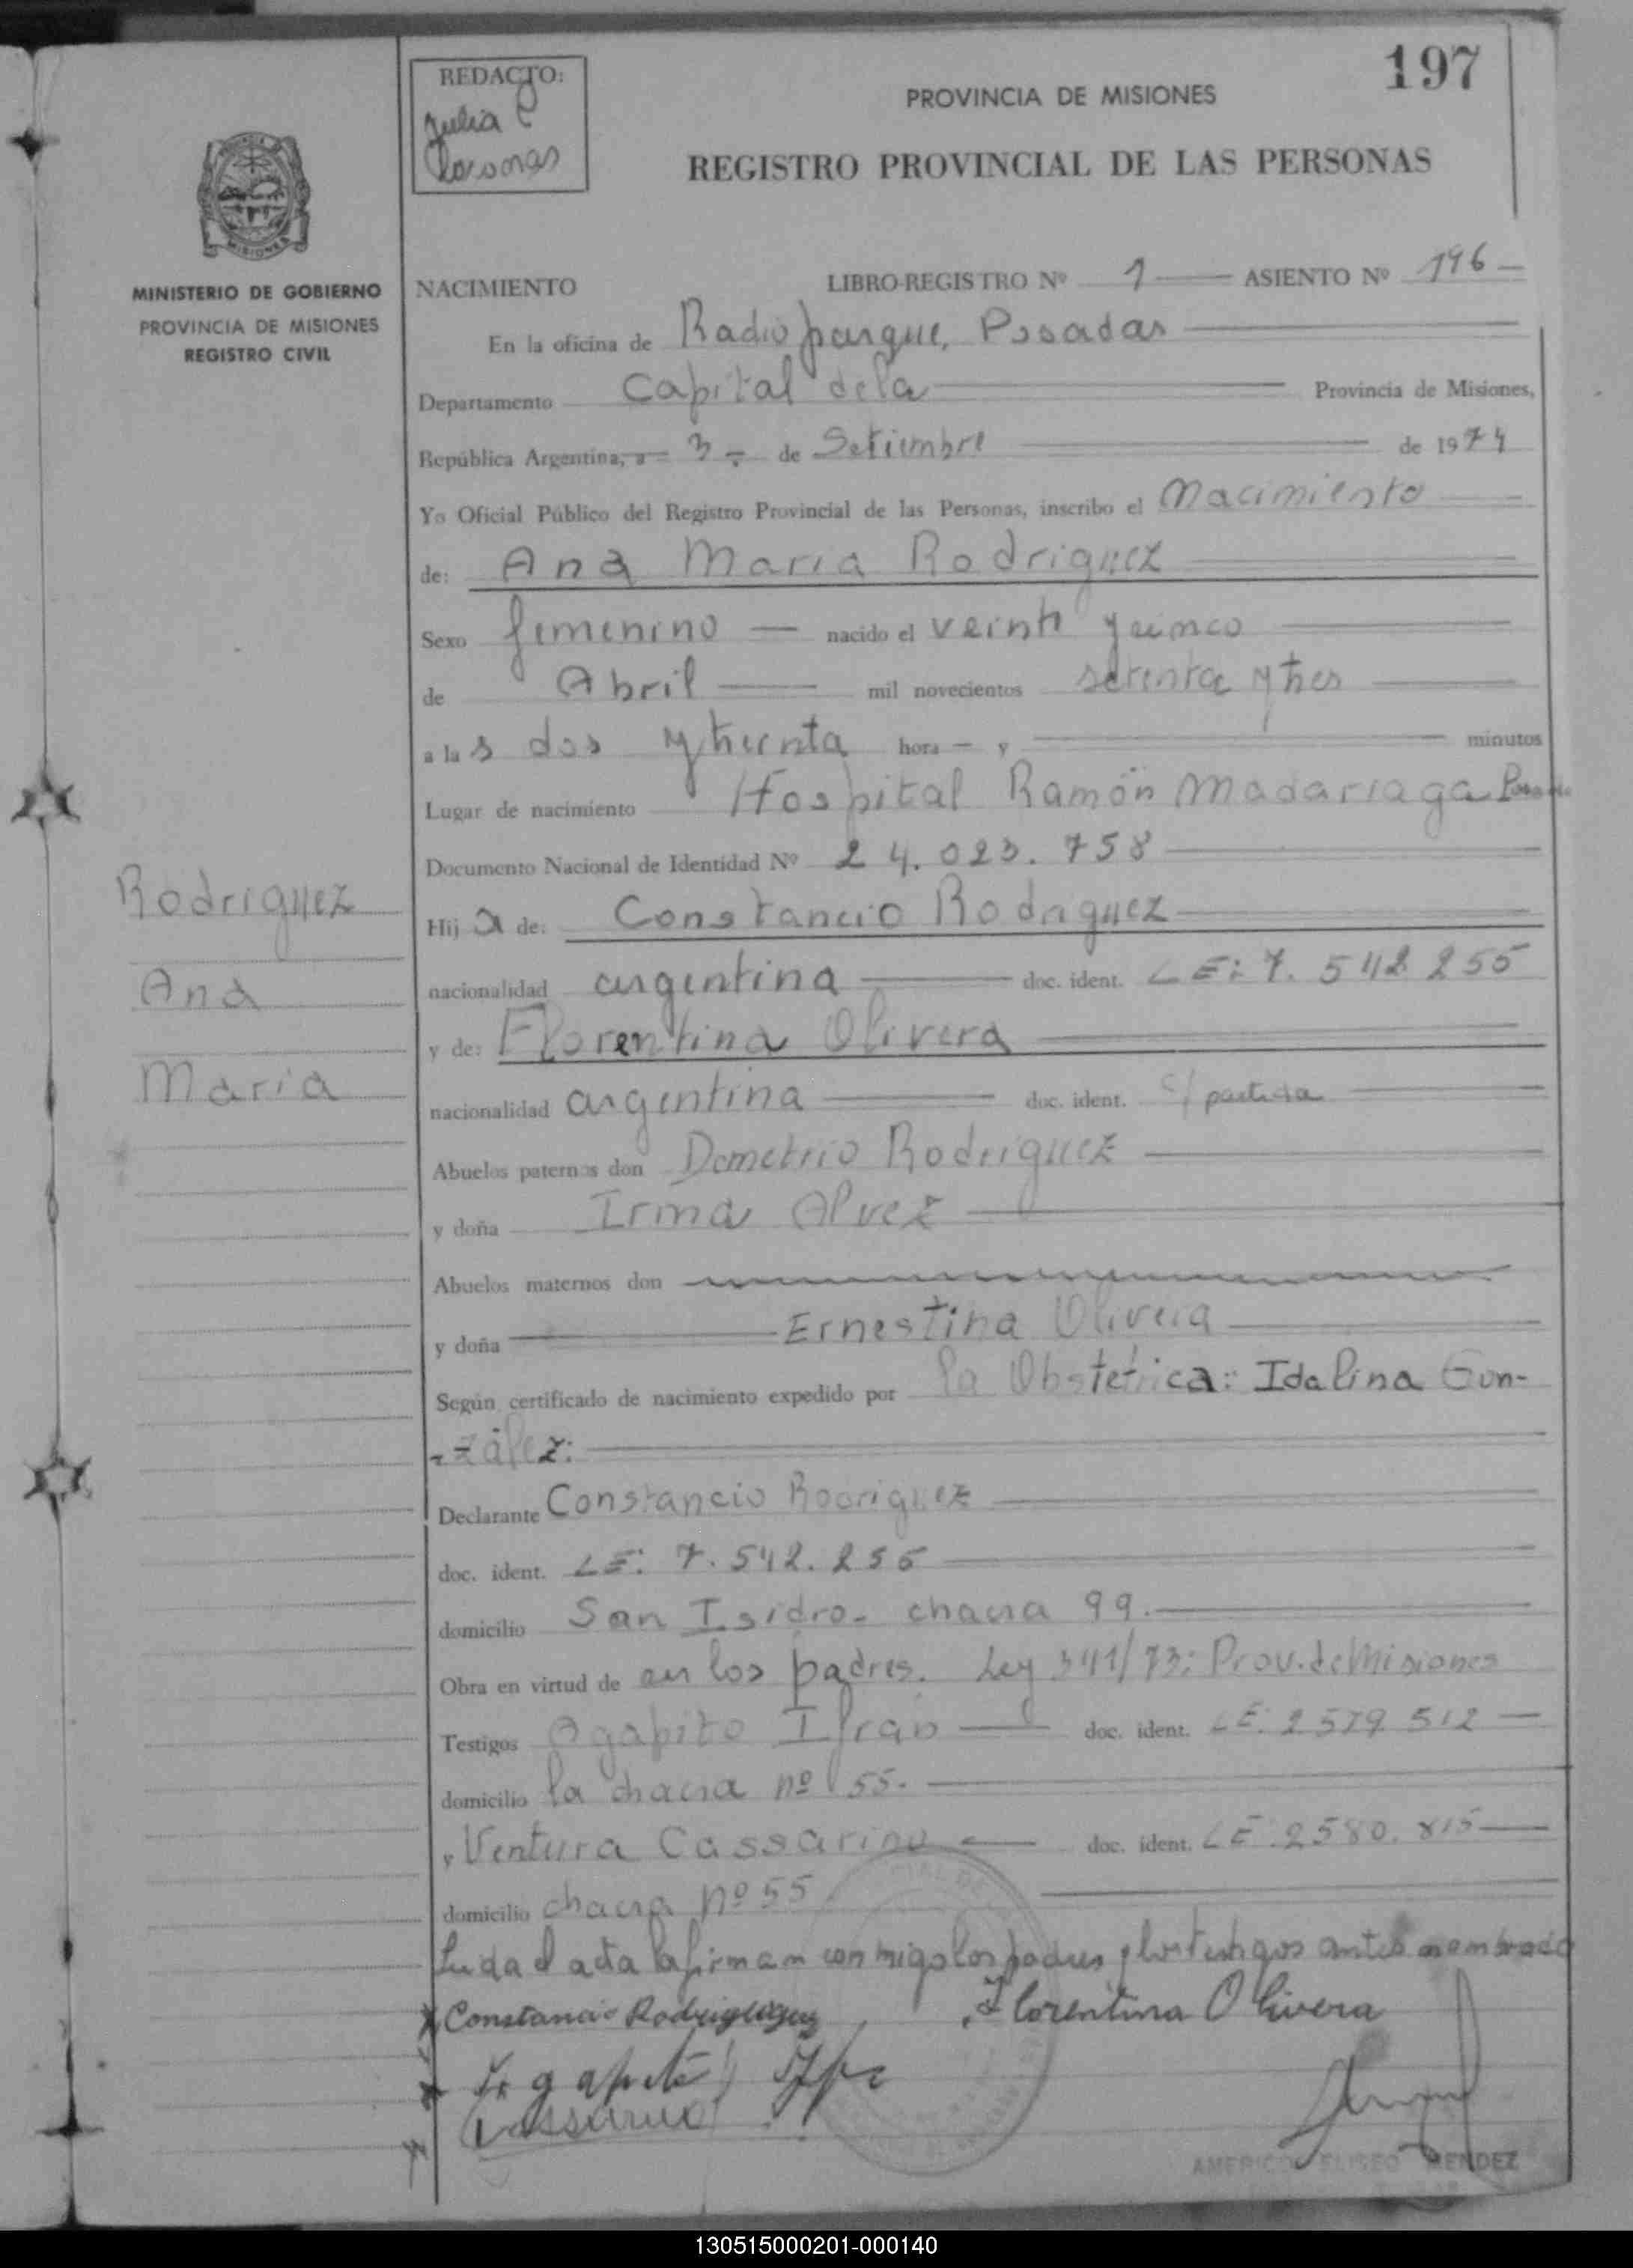 197
REDACTO:
Julia C
PROVINCIA DE MISIONES
REGISTRO PROVINCIAL DE LAS PERSONAS
MISIONES
MINISTERIO DE GOBIERNO
PROVINCIA DE MISIONES
REGISTRO CIVIL
NACIMIENTO LIBRO-REGISTRO Nº 1 ASIENTO Nº 196
En la oficina de Radio parque, Posadas
Departamento Capital de la Provincia de Misiones,
República Argentina, a 3 de Setiembre de 1974
Yo Oficial Público del Registro Provincial de las Personas, inscribo el Nacimiento
de: Ana Maria Rodriguez
Sexo femenino nacido el veinti y cinco
de Abril mil novecientos setenta y tres
a las dos y treinta hora y minutos
Lugar de nacimiento Hospital Ramón Madariaga Posadas
Documento Nacional de Identidad Nº 24.023.758
Rodriguez
Ana
Maria
Hija de: Constancio Rodriguez
nacionalidad argentina doc. ident. LE: 7.542.255
y de: Florentina Olivera
nacionalidad argentina doc. ident. c/ partida
Abuelos paternos don Demetrio Rodriguez
y doña Irma Alvez
Abuelos maternos don
y doña Ernestina Olivera
Según certificado de nacimiento expedido por la Obstetrica: Idalina Gon-
-zález:
Declarante Constancio Rodriguez
doc. ident. LE: 7.542.255
domicilio San Isidro- chacra 99.
Obra en virtud de ser los padres. Ley 341/73: Prov. de Misiones
Testigos Agapito Ifran doc. ident. LE: 2579 512
domicilio la chacra nº 55.
y Ventura Cassarino doc. ident. LE: 2580.815
domicilio chacra nº 55
Leida el acta la firman conmigo los padres y los testigos antes nombrado
Constancio Rodriguez Florentina Olivera
Agapito
Cassarino
AMERICO ELISEO MENDEZ
130515000201-000140